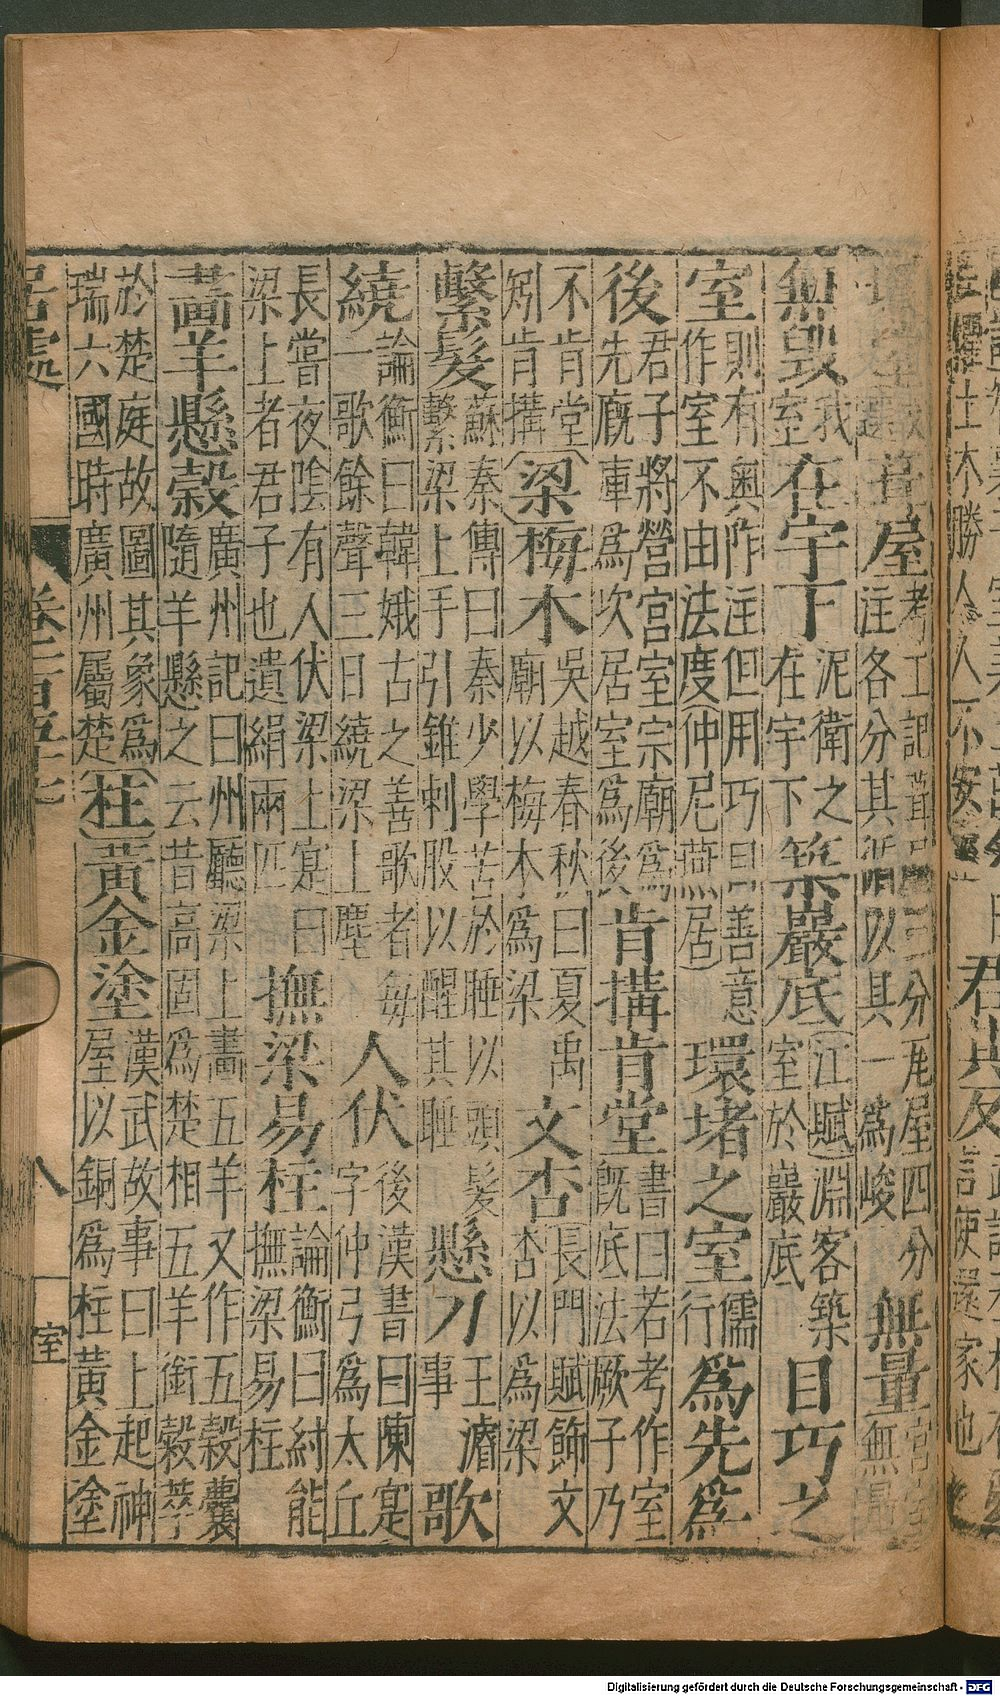 土木勝人人不安
葺屋考工記葺屋三分瓦屋四分注各分其脩以其一為峻無量
無毀我室在宇下泥衛之在宇下築巖底江賦淵客築室於巖底目巧之
室則有奧阼注但用巧目善意作室不由法度仲尼燕居環堵之室儒行為先為
後君子將營宮室宗廟為先廐庫為次居室為後肯搆肯堂書曰若考作室既底法厥子乃
不肯堂矧肯搆梁梅木吳越春秋曰夏禹廟以梅木為梁文杏長門賦飾文杏以為梁
繫髮蘇秦傳曰秦少學苦於睡以頭髮繫梁上手引錐刺股以醒其睡懸刀王濬事歌
繞論衡曰韓娥古之善歌者每一歌餘聲三日繞梁上塵人伏後漢書曰陳寔字仲弓為太丘
長嘗夜陰有人伏梁上寔曰梁上者君子也遺絹兩匹撫梁易柱論衡曰紂能撫梁易柱
畫羊懸穀廣州記曰州廳梁上畫五羊又作五穀囊隨羊懸之云昔高固為楚相五羊銜穀莖
於楚庭故圖其象為瑞六國時廣州屬楚柱黃金塗漢武故事曰上起神屋以銅為柱黃金塗
居處 卷 八 室
Digitalisierung gefördert durch die Deutsche Forschungsgemeinschaft - DFG